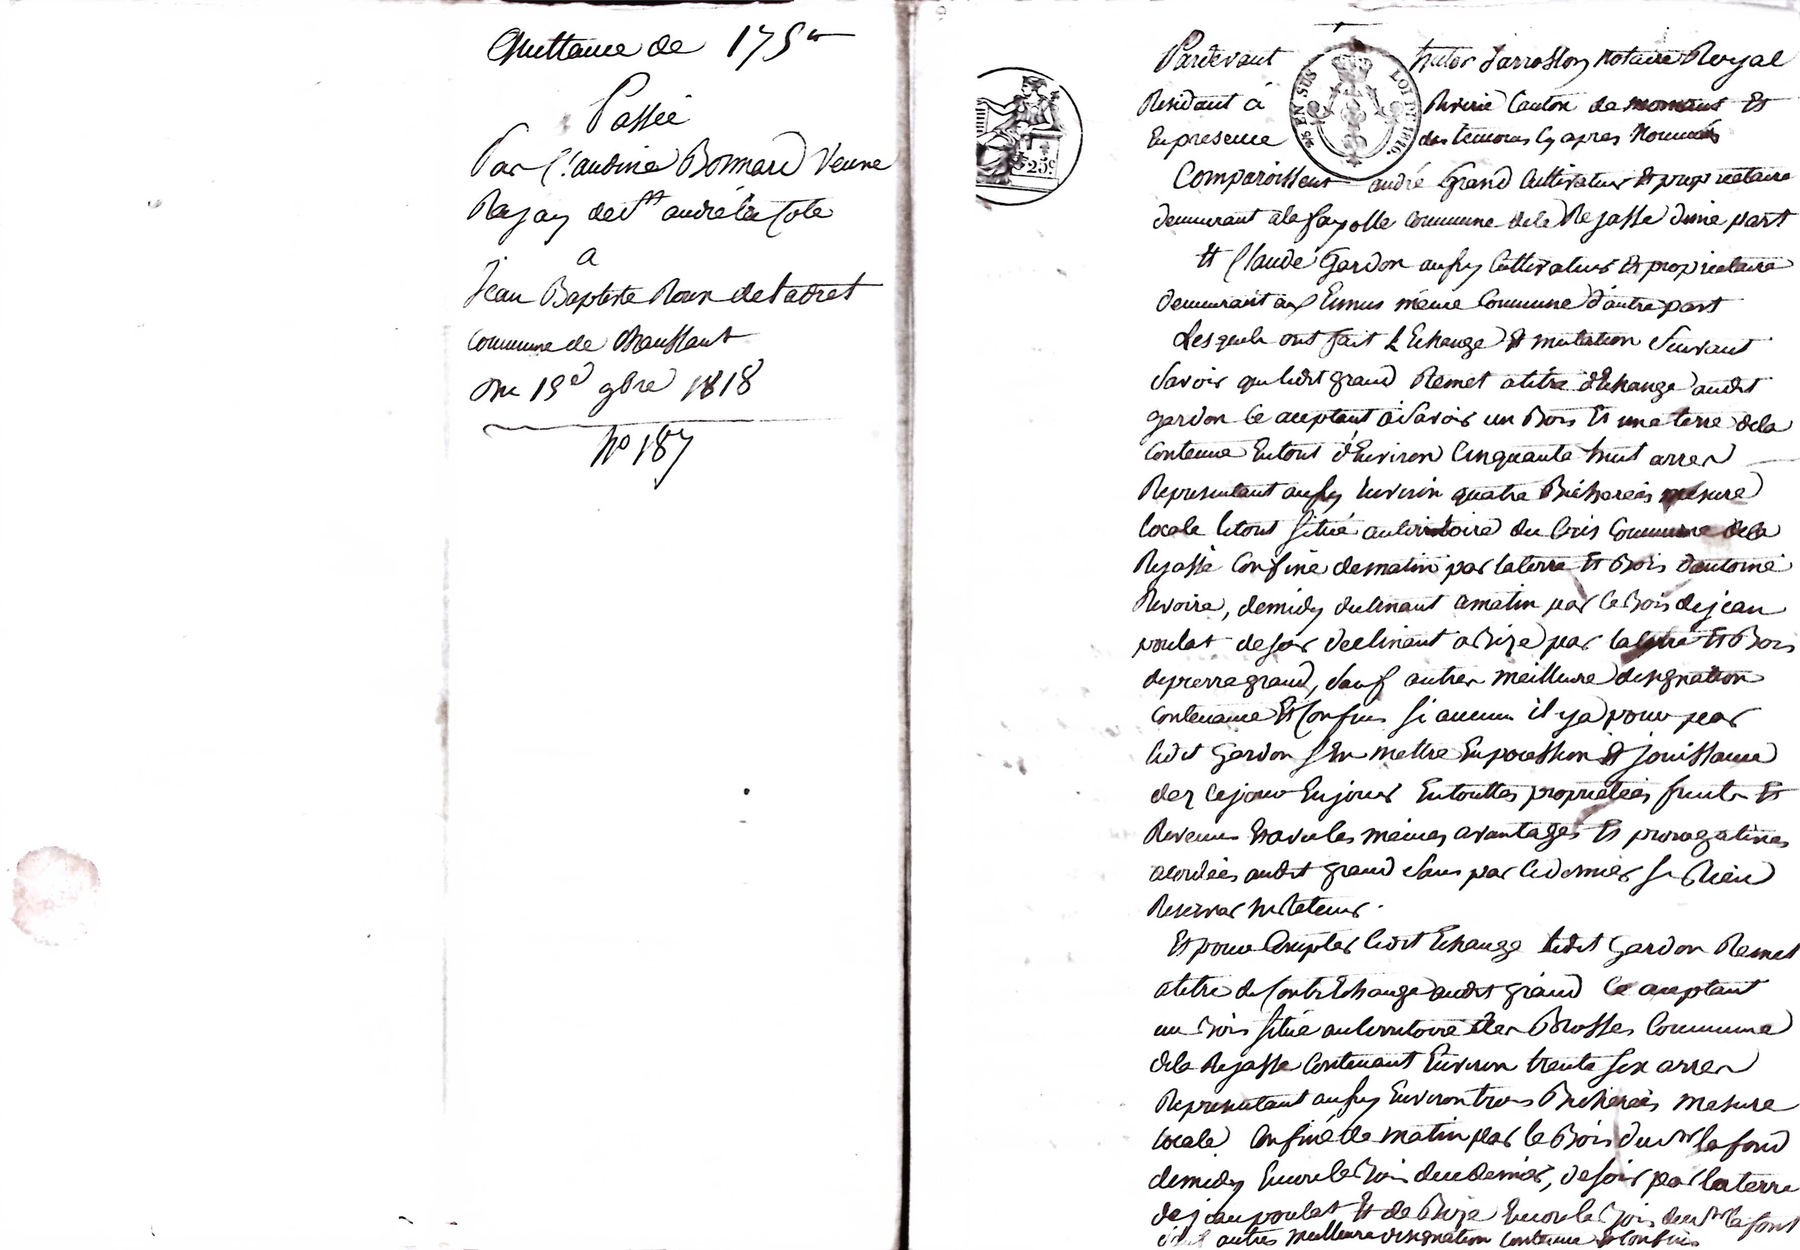 Quittance de 175 ₶
Passée
Par Claudine Bonnard Veuve
Rajay de St andré la Cote
a
Jean Baptiste Roux de ladret
commune de Chaussant
Du 13e 9bre 1818
No 187
25c.
EN SUS
LOI DE 1816.
Pardevant notaire Royal
Residant à Riverie Canton de mornant Et
En presence des temoins cy apres Nommés
Comparoissent andré Grand Cultivateur Et proprietaire
demeurant a la fayolle commune de la Rejasse d'une part
Et Claude Gardon aussy Cultivateur Et proprietaire
demeurant aux même Commune d'autre part
Lesquels ont fait L'Echange Et mutation Suivant
Savoir que ledit grand Remet a titre d'Echange audit
gardon Ce acceptant à Savoir un Bois Et une terre de la
Contenue En tout d'Environ Cinquante huit arres
Representant aussy Environ quatre Bicherées mesure
locale le tout Situé au territoire du Commune de la
Rejasse Confiné de matin par la terre Et Bois d'antoine
Revoire, de midy declinant a matin par le Bois de jean
poulat de soir declinant a Bize par la terre Et Bois
de pierre grand, Sauf autres meilleure designation
Contenance Et Confins Si aucuns il y a pour par
ledit Gardon S'En mettre En possession Et jouissance
dez ce jourd'huy En touttes proprietées fruits Et
Revenus Et avec les mêmes avantages Et prerogatives
accordées audit grand Sans par ce dernier Se Rien
Reserver ni Retenir.
Et pour Compler ledit Echange ledit Gardon Remet
a titre de Contr'Echange audit grand Ce acceptant
un Bois Situé au territoire des Brosses Commune
de la Rejasse Contenant Environ trente Six arres
Representant aussy Environ trois Bicherées mesure
locale Confiné de matin par le Bois du Sr lafond
de midy Encore le Bois de ce dernier, de soir par la terre
de jean poulat Et de Bize Encore le Bois du Sr lafont
Sauf autres meilleure designation Contenue Et Confins